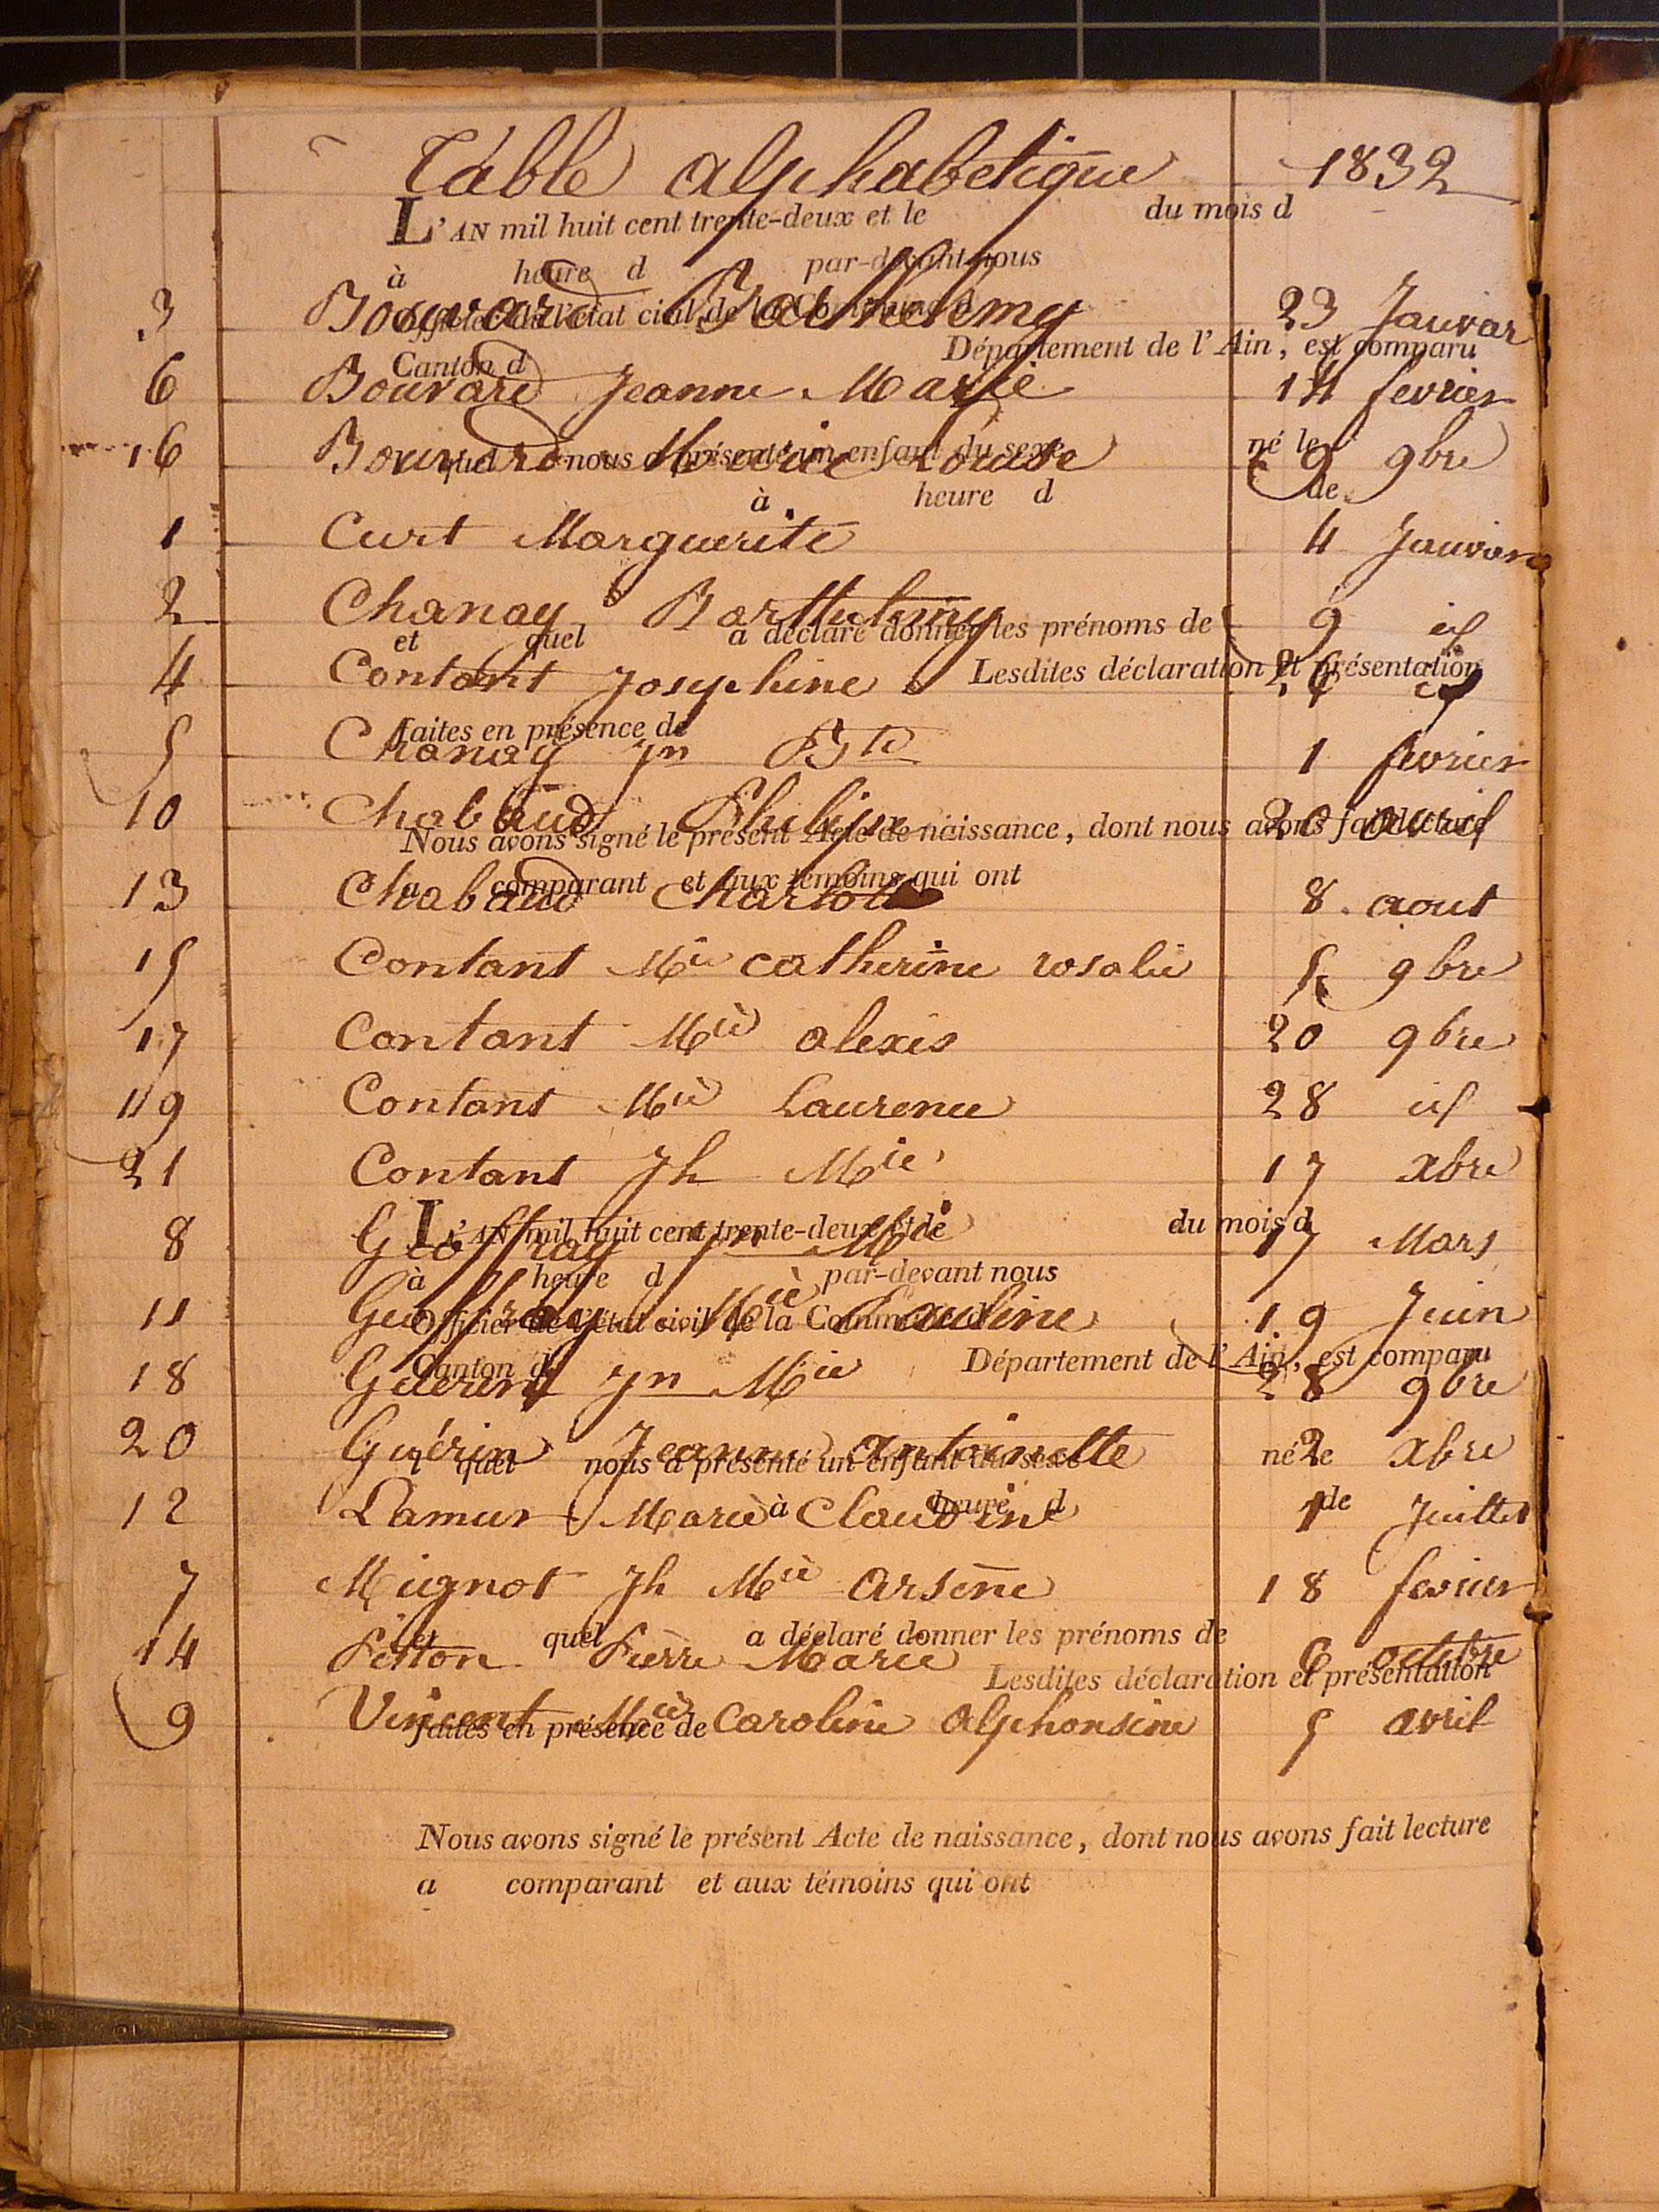 Table alphabetique 1832
L'AN mil huit cent trente-deux et le du mois d
à heure d par-devant nous
3 Bouvard Barthelemy 23 Janvier
Officier de l'état civil de la Commune d
Département de l'Ain, est comparu
Canton d
6 Bouvard Jeanne Marie 14 fevrier
16 Bouvard Marie Louise 9 9bre
quel nous a présenté un enfant du sexe né le
à heure d de
1 Curt Marguerite 4 Janvier
2 Chanay Barthelemy 9 id
et quel a déclaré donner les prénoms de
4 Contant Josephine 26 id
Lesdites déclaration et présentation
faites en présence de
5 Chanay Jn Bte 1 fevrier
10 Chabaud Philippe 20 avril
Nous avons signé le présent Acte de naissance, dont nous avons fait lecture
a comparant et aux témoins qui ont
13 Chabaud Charlotte 8 aout
15 Contant Mie catherine rosalie 5 9bre
17 Contant Mie alexis 20 9bre
19 Contant Mie Laurence 28 id
21 Contant Jh Mie 17 xbre
L'AN mil huit cent trente-deux et le du mois d
8 Geoffray Jn Mie 17 Mars
à heure d par-devant nous
11 Geoffray Mie Pauline 19 Juin
Officier de l'état civil de la Commune d
Canton d Département de l'Ain, est comparu
18 Guérin Jn Mie 28 9bre
20 Guérin Jeanne antoinette 2 xbre
quel nous a présenté un enfant du sexe né le
à heure d de
12 Lamur Marie Claudine 1 Juillet
7 Mignot Jh Mie arsène 18 fevrier
et quel a déclaré donner les prénoms de
14 Pitton Pierre Marie 6 octobre
Lesdites déclaration et présentation
9 Vincent Mie Caroline alphonsine 5 avril
faites en présence de
Nous avons signé le présent Acte de naissance, dont nous avons fait lecture
a comparant et aux témoins qui ont